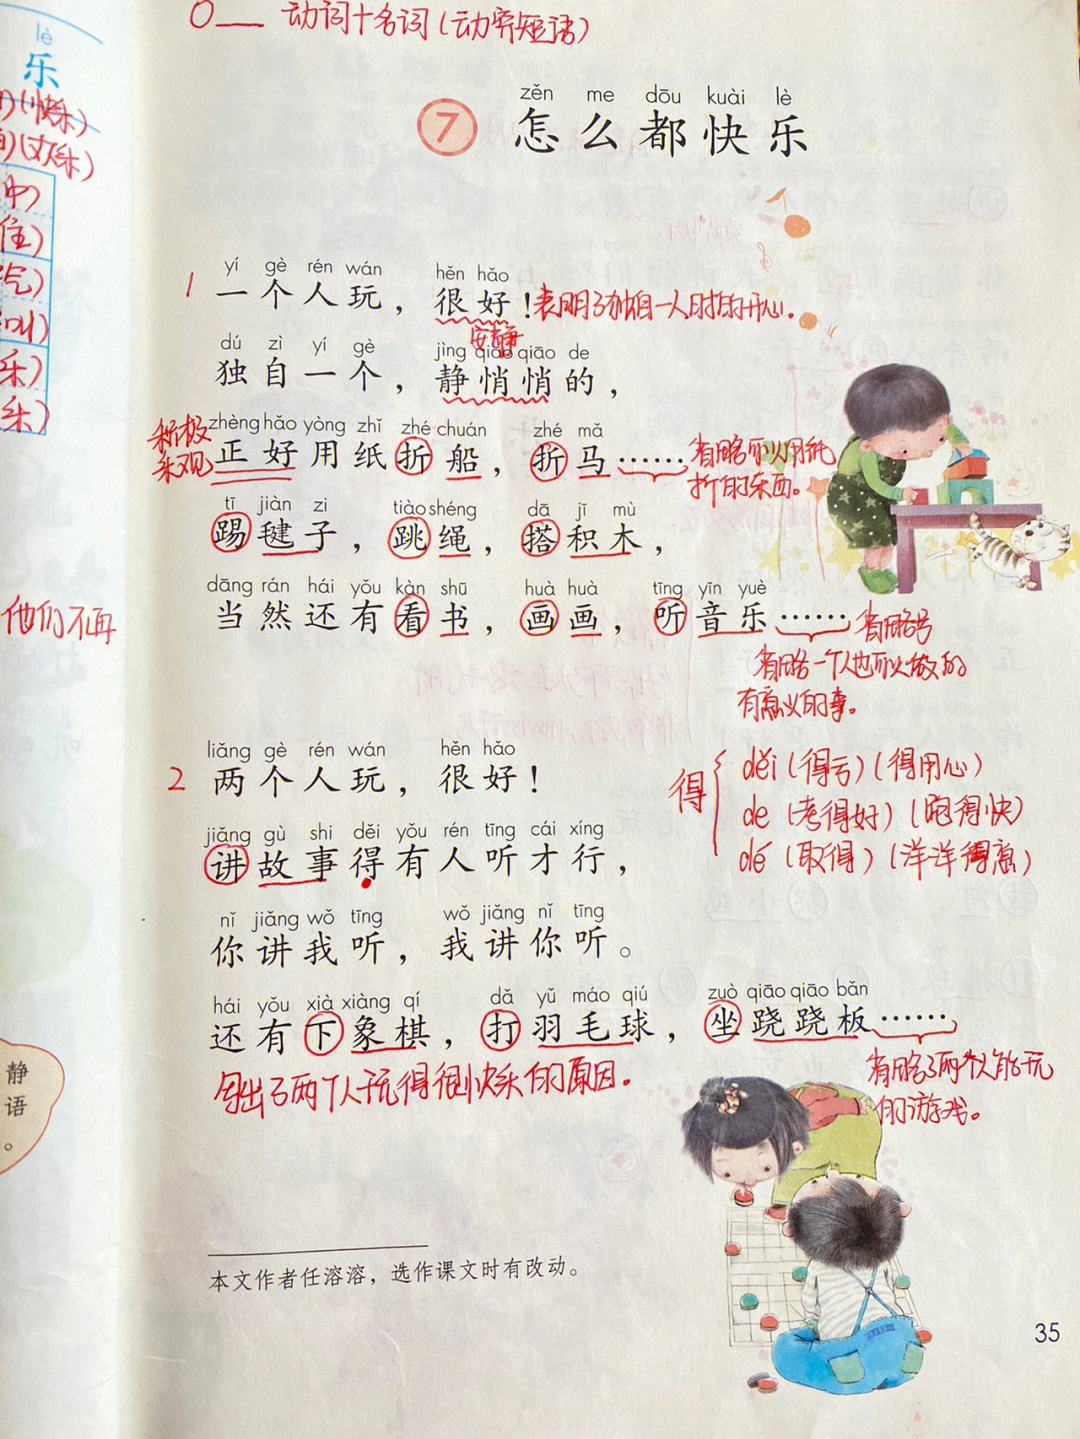 ○__ 动词十名词(动宾短语)
lè
乐
(快乐)
zěn me dōu kuài lè
7 怎么都快乐
yí gè rén wán hěn hǎo
1 一个人玩，很好！表明了独自一人时的开心。
安静
dú zì yí gè jìng qiāo qiāo de
独自一个，静悄悄的，
zhèng hǎo yòng zhǐ zhé chuán zhé mǎ
积极乐观
正好用纸折船，折马……
省略可以用纸
折的东西。
tī jiàn zi tiào shéng dā jī mù
踢毽子，跳绳，搭积木，
dāng rán hái yǒu kàn shū huà huà tīng yīn yuè
当然还有看书，画画，听音乐……
省略号
省略一个人也可以做的
有意义的事。
他们不再
liǎng gè rén wán hěn hǎo
2 两个人玩，很好！
得 děi (得亏)(得用心)
de (考得好)(跑得快)
dé (取得)(洋洋得意)
jiǎng gù shi děi yǒu rén tīng cái xíng
讲故事得有人听才行，
nǐ jiǎng wǒ tīng wǒ jiǎng nǐ tīng
你讲我听，我讲你听。
hái yǒu xià xiàng qí dǎ yǔ máo qiú zuò qiāo qiāo bǎn
还有下象棋，打羽毛球，坐跷跷板……
写出了两个人玩得很快乐的原因。
省略了两个人能玩
的游戏。
静
语
。
本文作者任溶溶，选作课文时有改动。
35